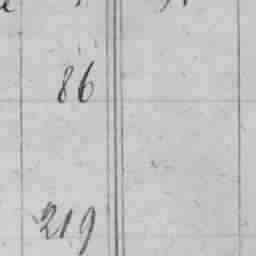 86
219